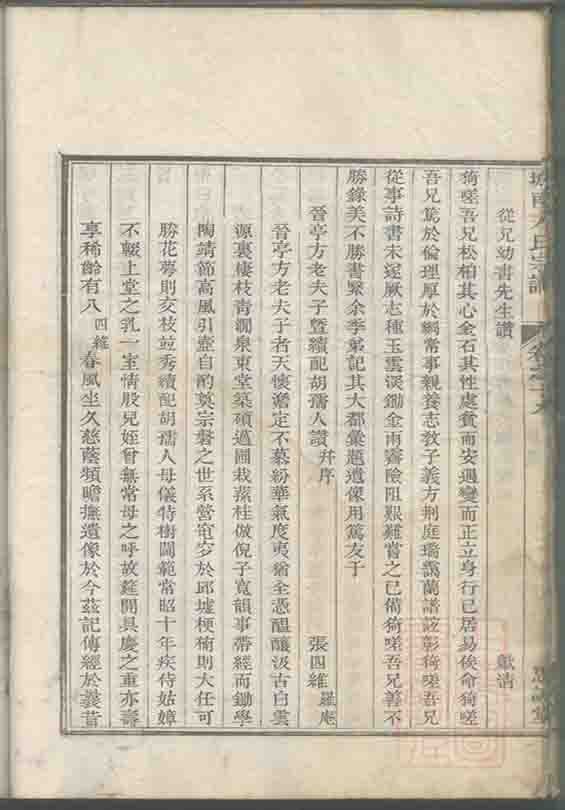 從兄幼書先生讚
猗嗟吾兄松柏其心金石其性處貧而安遇變而正立身行己居易俟命猗嗟
吾兄篤於倫理厚於綱常事親養志敎子義方荆庭 蘭譜 彰猗嗟吾兄
從事詩書未遂厥志種玉雲溪鋤金雨 險阻艱難嘗之已備猗嗟吾兄善不
勝錄美不勝書緊余季弟記其大都彙題遺像用篤友于
晉亭方老夫子暨續配胡孺人讚 幷序 張四維 羅庵
晉亭方老夫子者天懷澹定不慕紛華氣度夷猶全憑醞釀汲古白雲
源裏棲枝靑澗泉東堂築碩邁圃栽蘂桂倣倪子寬韻事帶經而鋤學
陶靖節高風引壺自酌奠宗磐之世系營窀穸於邱墟梗楠則大任可
勝花萼則交枝竝秀續配胡孺人母儀特樹閫範常昭十年疾侍姑嫜
不輟上堂之乳一室情殷兒姪曾無常母之呼故筵開具慶之重亦壽
享稀齡有八 四維 春風坐久慈蔭頻瞻撫遺像於今茲記傳經於曩昔